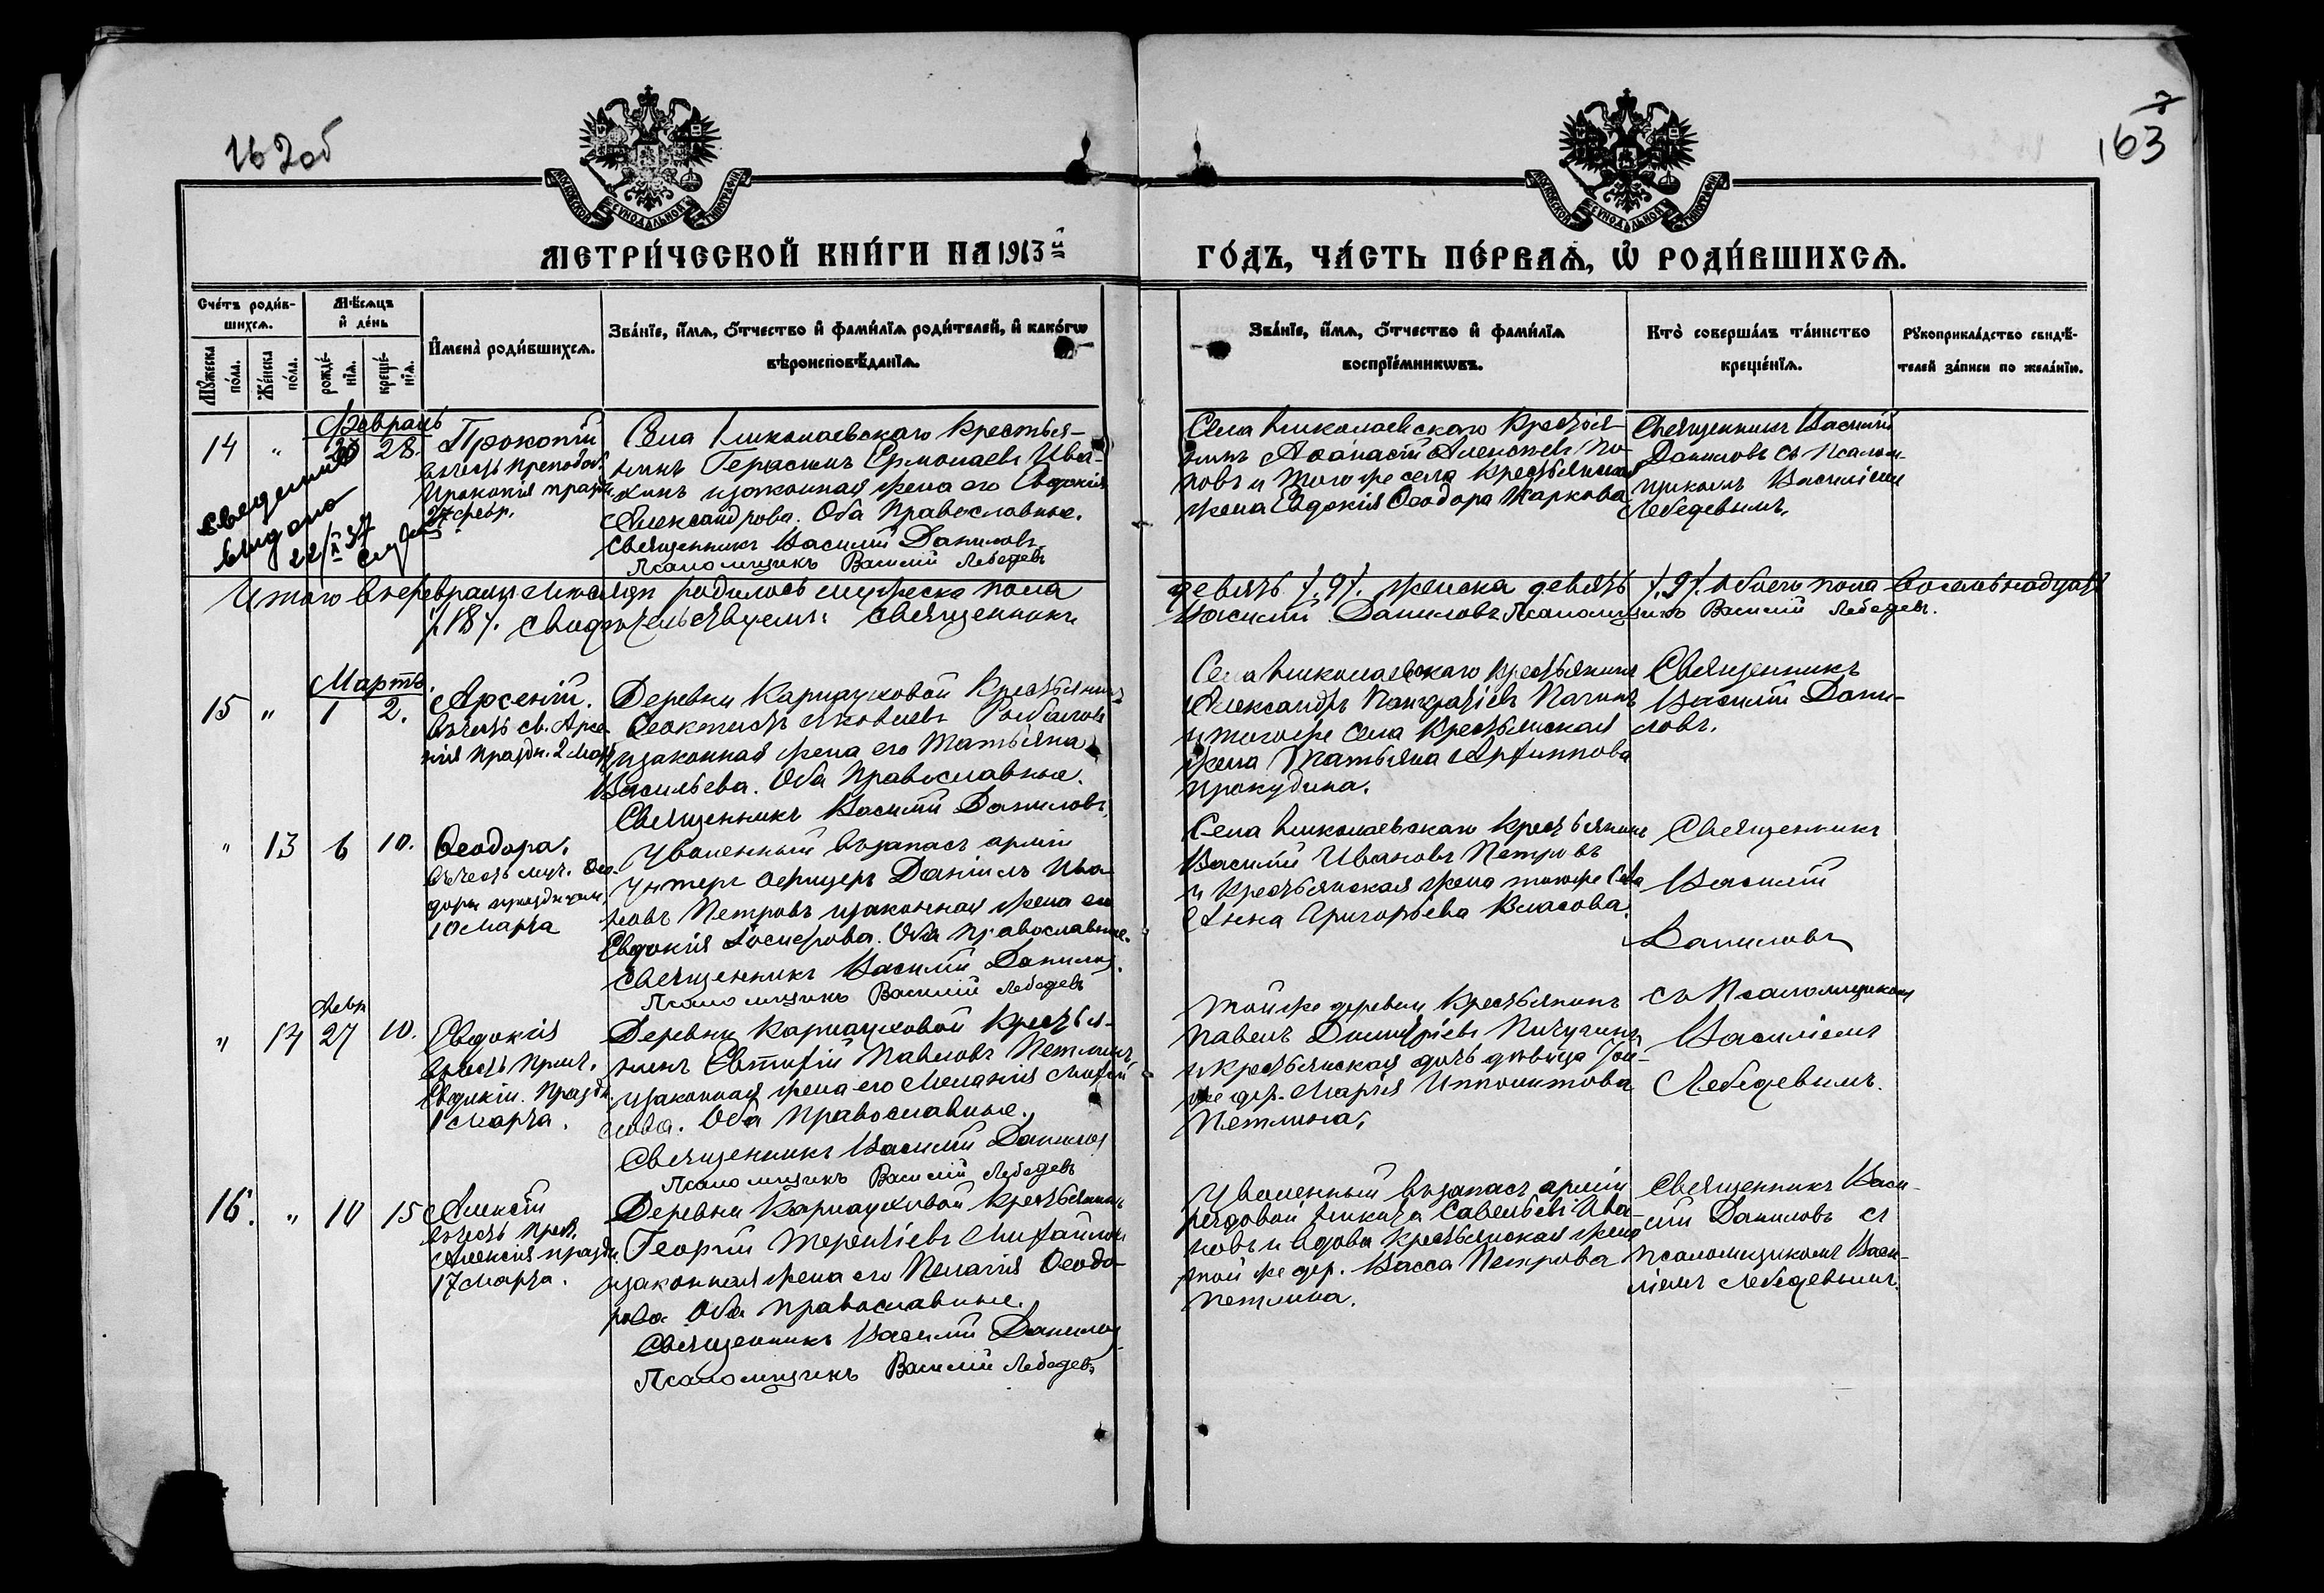 162об
163
МЕТРИ́ЧЕСКОЙ КНИ́ГИ НА 1913й
ГО́ДЪ, ЧА́СТЬ ПЕ́РВАѦ, Ѡ҆ РОДИ́ВШИХСѦ.
Сче́тъ роди́в-
шихсѧ.
Мꙋ́жеска
по́ла.
Же́нска
по́ла.
Мѣ́сѧцъ
и҆ де́нь
рожде́-
нїѧ.
креще́-
нїѧ.
И҆мена̀ роди́вшихсѧ.
Зва́нїе, и҆́мѧ, ѻ҆́тчество и҆ фами́лїѧ роди́телей, и҆ како́гѡ
вѣроисповѣ́данїѧ.
Зва́нїе, и҆́мѧ, ѻ҆́тчество и҆ фами́лїѧ
воспрїе́мникѡвъ.
Кто̀ соверша́лъ та́инство
креще́нїѧ.
Рꙋкоприкла́дство свидѣ́-
телей за́писи по жела́нїю.
Февраль
14 " 28.
Прокопій
въ честь преподоб.
Прокопія праздн.
27 февр.
Свидетель
выдано
22/X 37
Села Николаевскаго Крестья-
нинъ Герасимъ Ермолаевъ Ива-
и законная жена его Евдокія
Александрова. Оба Православные.
Священникъ Василій Даниловъ.
Псаломщикъ Василій Лебедевъ
Села Николаевскаго Крестья-
нинъ Аѳанасій Алексѣевъ По-
повъ и того же села крестьянская
жена Евдокія Ѳеодора Жаркова
Священникъ Василій
Даниловъ съ Псалом-
щикомъ Василіемъ
Лебедевымъ.
Итого въ Февралѣ мѣсяцѣ родилось мужеска пола
девять /.9/. женска девять /.9/. Обоего пола восемьнадцать
/.18/. Свидѣтельствуемъ: Священникъ
Василій Даниловъ Псаломщикъ Василій Лебедевъ.
Мартъ.
15 " 1 2.
Арсеній.
въ честь св. Арсе-
нія праздн. 2 Мар
Деревни Карпауховой Крестьянинъ
Ѳеоктистъ Яковлевъ
и законная жена его Татьяна
Васильева. Оба Православные.
Священникъ Василій Даниловъ.
Села Николаевскаго Крестьянинъ
Александръ Панкратіевъ
и того же села Крестьянская
жена Татьяна
Прокудина.
Священникъ
Василій Дани-
ловъ.
" 13 6 10.
Ѳеодора.
въ честь муч. Ѳео-
доры празднуем.
10 Марта
Уволенный въ запасъ арміи
Унтеръ Офицеръ Даніилъ Ива-
новъ Петровъ и законная жена его
Евдокія Іосифова. Оба Православные.
Священникъ Василій Даниловъ.
Псаломщикъ Василій Лебедевъ
Села Николаевскаго крестьянинъ
Василій Ивановъ Петровъ
и Крестьянская жена того же Села
Анна Григорьева Власова.
Священникъ
Василій
Даниловъ
Февр
" 14 27 10.
Евдокія
въ честь прмч.
Евдокіи. Праздн.
1 Марта.
Деревни Карпауховой Крестья-
нинъ Евтифій Павловъ Петлинъ
и законная жена его Меланія
Оба Православные.
Священникъ Василій Даниловъ
Псаломщикъ Василій Лебедевъ
Той же деревни Крестьянинъ
Павелъ Димитріевъ Пичугинъ
и крестьянская дочь дѣвица той-
же дер. Марія Ипполитова
Петлина.
съ Псаломщикомъ
Василіемъ
Лебедевымъ.
16. " 10 15
Алексій
въ честь преп.
Алексія праздн.
17 Марта.
Деревни Карпауховой Крестьянинъ
Георгій Терентіевъ
и законная жена его Пелагія Ѳеодо-
рова. Оба Православные.
Священникъ Василій Даниловъ
Псаломщикъ Василій Лебедевъ
Уволенный въ запасъ арміи
рядовой Никита Савельевъ Ива-
новъ и вдова крестьянская жена
той же дер. Васса Петрова
Петлина.
Священникъ Васи-
лій Даниловъ съ
псаломщикомъ Васи-
ліемъ Лебедевымъ.